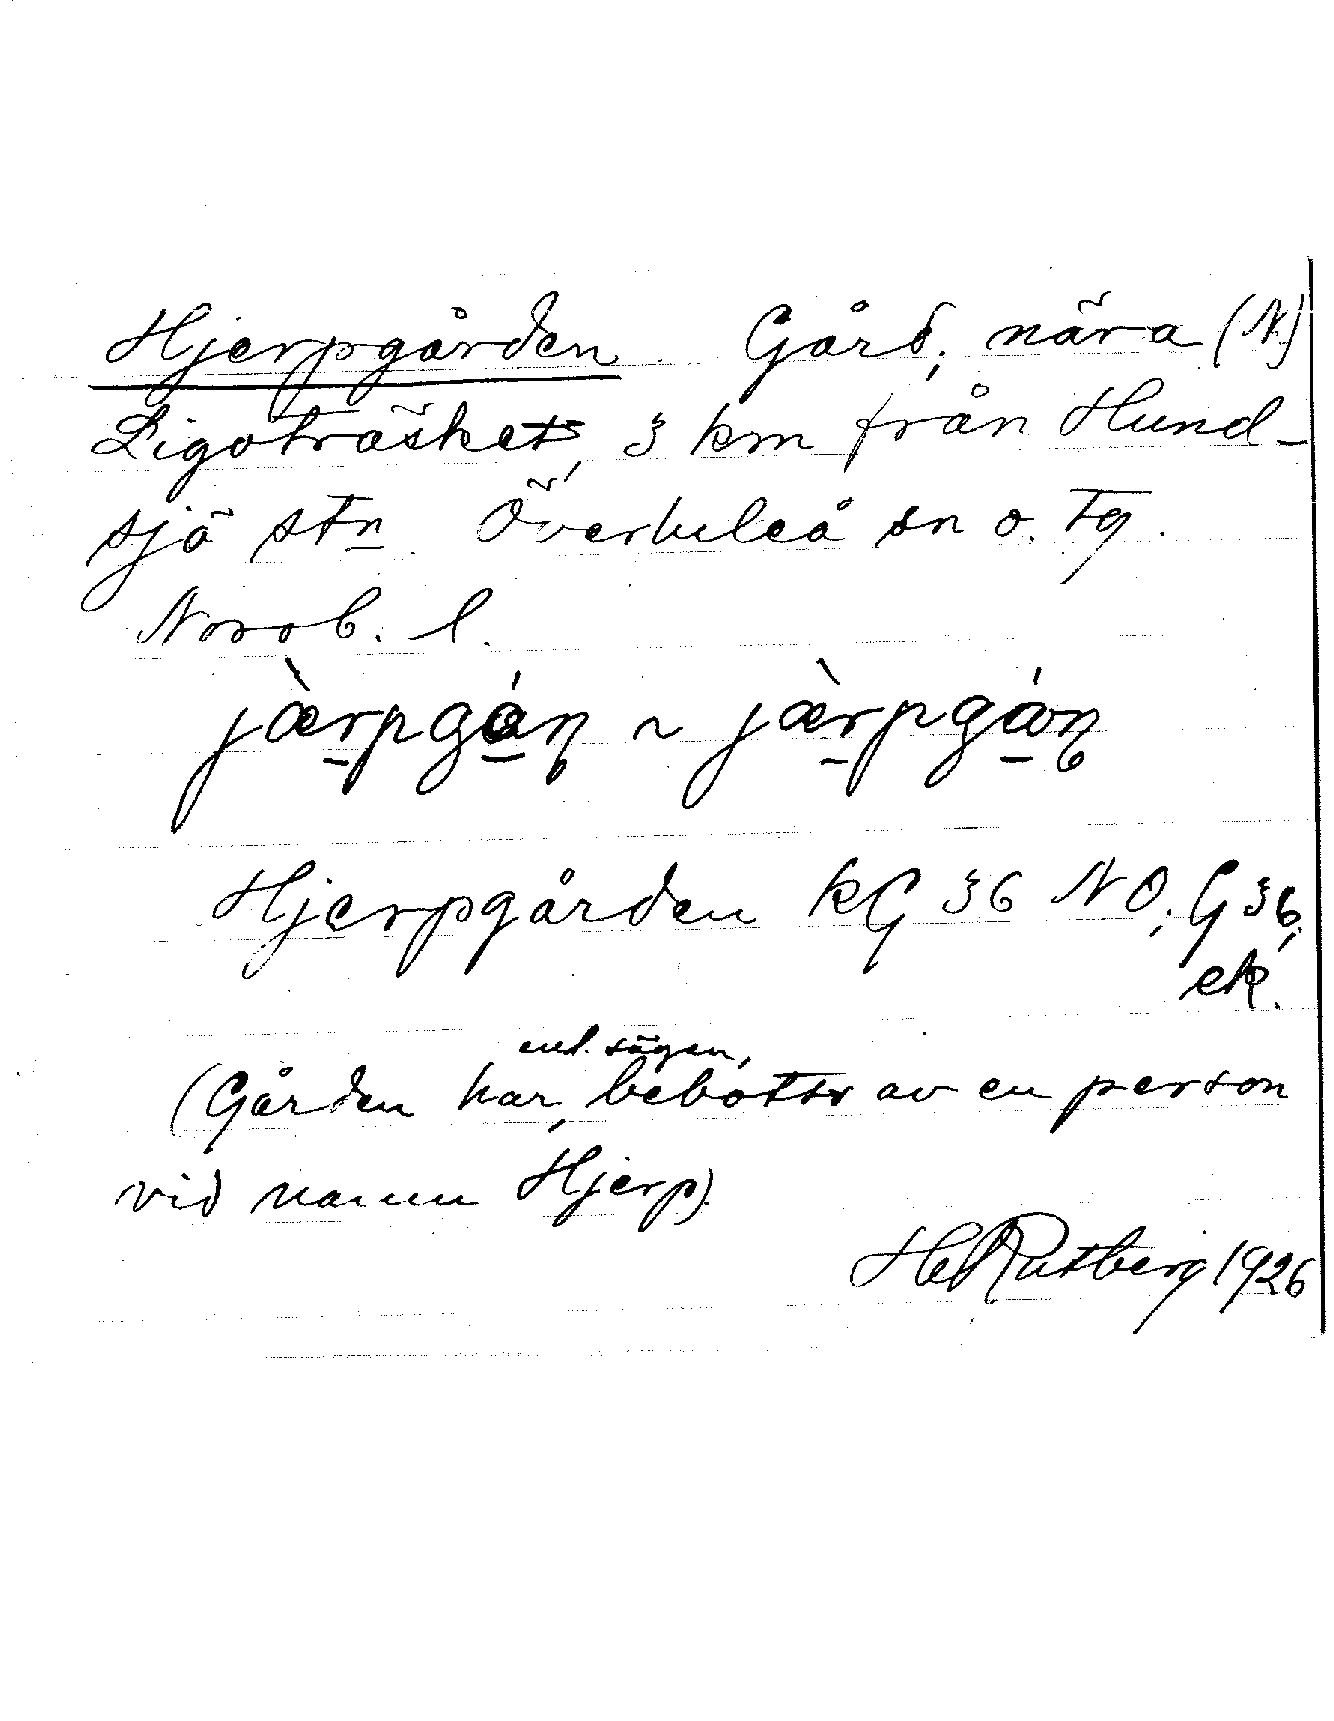 Hjerpgården Gård, nära (N.)
Ligoträsket, 3 km från Hund-
sjö stn Överluleå sn o. tg.
Norrb. l.
jæ̀rpgán ~ jæ̀rpgán
Hjerpgården kG 36 NO, G 36,
ek.
enl. sägen,
(Gården har, bebotts av en person
vid namn Hjerp).
H Rutberg 1926